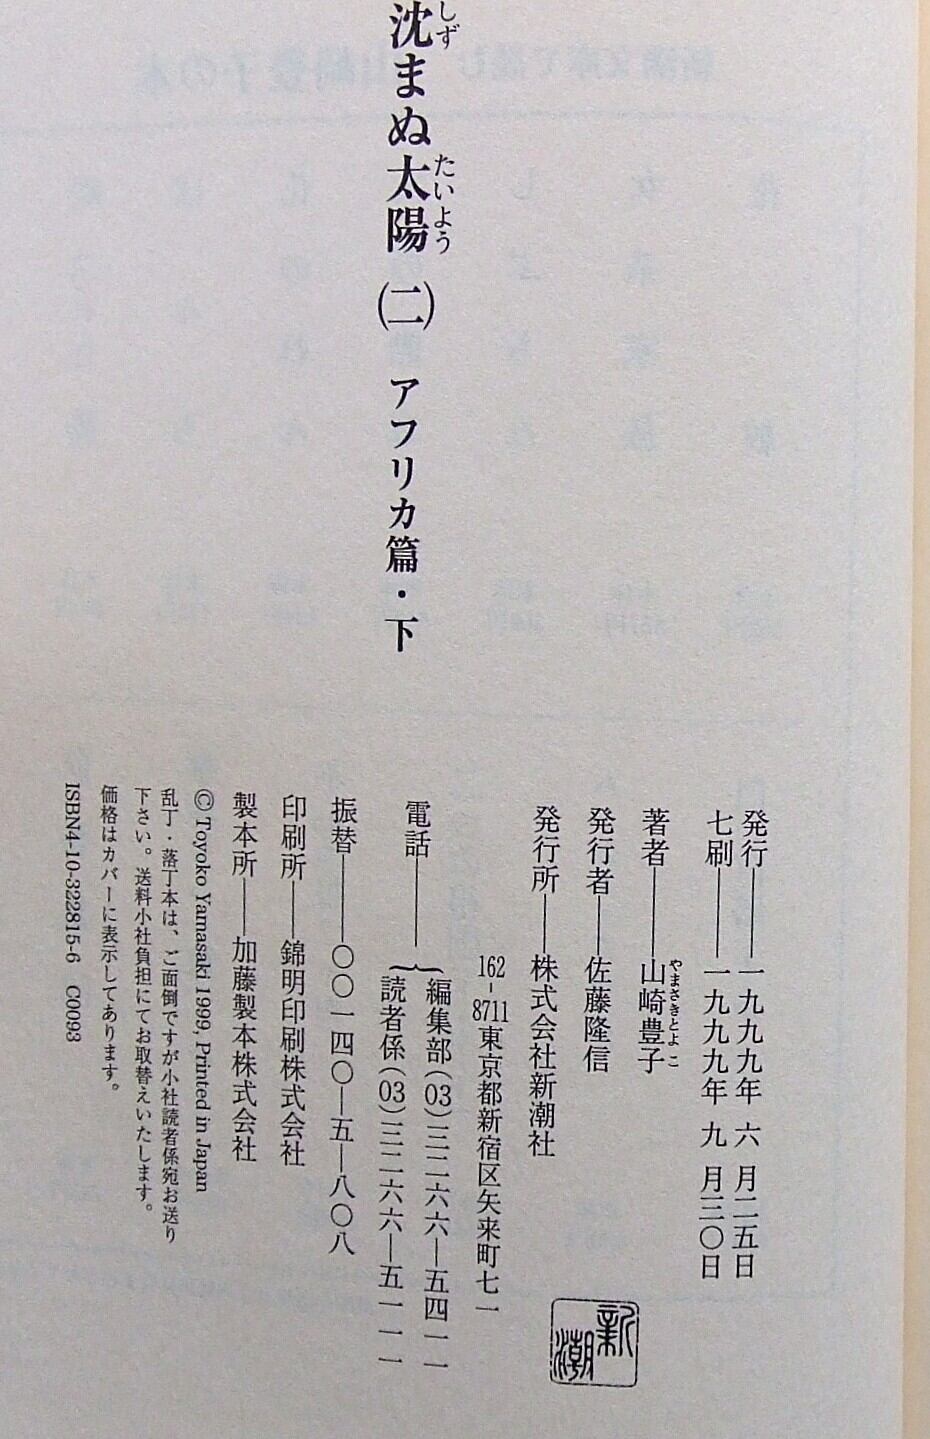 沈まぬ太陽(二) アフリカ篇・下
しず
たいよう
発行——一九九九年 六 月二五日
七刷——一九九九年 九 月三〇日
著者——山崎豊子
やまさきとよこ
発行者——佐藤隆信
発行所——株式会社新潮社
162-8711東京都新宿区矢来町七一
電話——編集部(03)三二六六—五四一一
読者係(03)三二六六—五一一一
振替——〇〇一四〇—五—八〇八
印刷所——錦明印刷株式会社
製本所——加藤製本株式会社
© Toyoko Yamasaki 1999, Printed in Japan
乱丁・落丁本は、ご面倒ですが小社読者係宛お送り
下さい。送料小社負担にてお取替えいたします。
価格はカバーに表示してあります。
ISBN4-10-322815-6 C0093
新潮